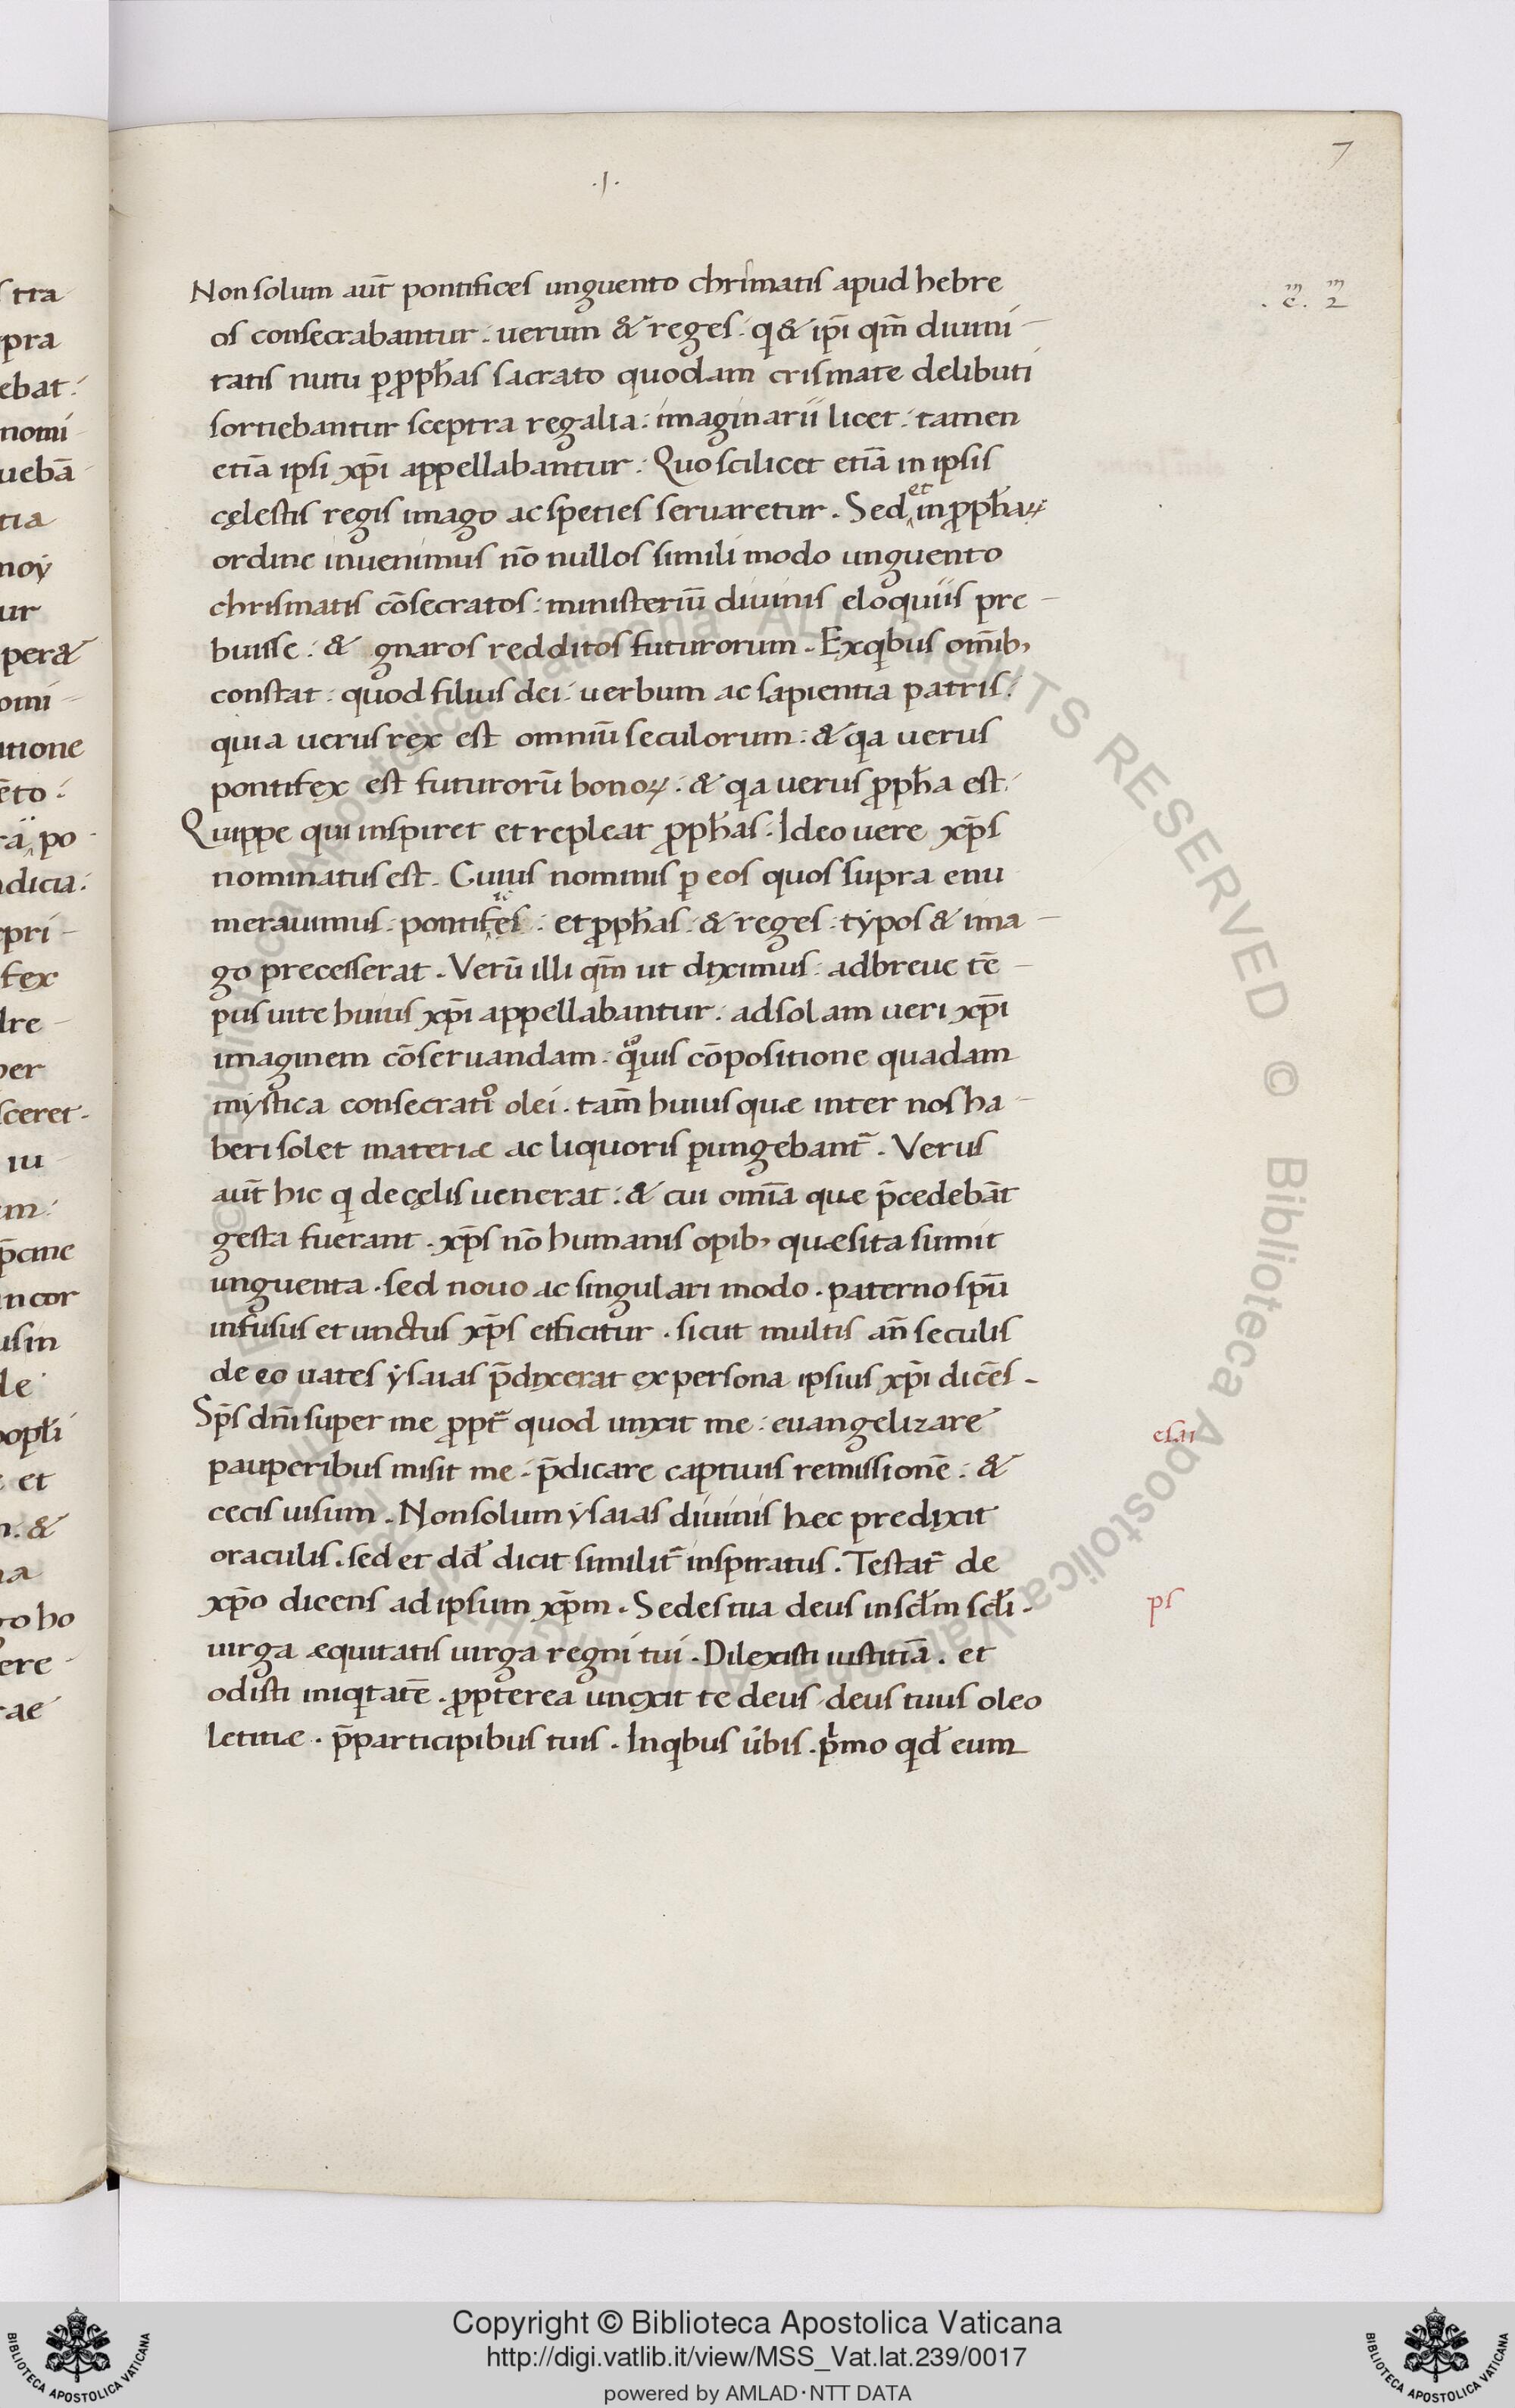 7
.I.
Non solum aut̄ pontifices unguento chrimatis apud hebre
os consecrabantur. uerum & reges. q& ip̄i qm̄ diuini
tatis nutu ꝑ ꝓph̄as sacrato quodam crismate delibuti
sortiebantur sceptra regalia: imaginarii licet. tamen
etiā ipsi xp̄i appellabantur. Quo scilicet etiā in ipsis
cęlestis regis imago ac speties seruaretur. Sed et in ꝓph̄aꝝ
ordine inuenimus nō nullos simili modo unguento
chrismatis cōsecratos. ministeriū diuinis eloquiis pre
buisse. & gnaros redditos futurorum. Exqibus om̄ib,
constat. quod filius dei. uerbum ac sapientia patris.
quia uerus rex est omniū seculorum. & qa uerus
pontifex est futurorū bonoꝝ. & qa uerus ꝓph̄a est.
Quippe qui inspiret et repleat ꝓph̄as. Ideo uere xp̄s
nominatus est. Cuius nominis ꝑ eos quos supra enu
merauimus. pontifices. et ꝓph̄as. & reges. typos & ima
go precesserat. Verū illi qm̄ ut diximus. adbreue tē
pus uite huius xp̄i appellabantur. ad solam ueri xp̄i
imaginem cōseruandam. qͦuis cōpositione quadam
mystica consecratiͦ olei. tam̄ huius quæ inter nos ha
beri solet materiæ ac liquoris ꝑungebant᷑. Verus
aut̄ hic q de cęlis uenerat. & cui om̄ia quæ p̄cedebāt
gesta fuerant. xp̄s nō humanis opib, quæsita sumit
unguenta. sed nouo ac singulari modo. paterno sp̄u
infusus et unctus xp̄s efficitur. sicut multis an̄ seculis
de eo uates ysaias p̄dixerat ex persona ipsius xp̄i dicēs.
Sp̄s dn̄i super me ꝓpt᷑ quod unxit me. euangelizare
esai
pauperibus misit me. p̄dicare captiuis remissionē. &
cecis uisum. Non solum ysaias diuinis hæc predixit
oraculis. sed et dd̄ dicit similit᷑ inspiratus. Testat᷑ de
xp̄o dicens ad ipsum xp̄m. Sedes tua deus in scl̄m scl̄i.
ps
uirga æquitatis uirga regni tui. Dilexisti iustitiā. et
odisti iniqitatē. ꝓpterea unxit te deus deus tuus oleo
letitiæ. p̄participibus tuis. Inqibus ūbis. pⁱmo qd̄ eum
tra
pra
ebat.
nomi
uebā
tia
ur
per&
omi
tione
ēto.
po
dicia.
pri
fex
dre
per
sceret.
iu
p̄cine
ncor
usin
de
et
&
to ho
ere
rae
Copyright © Biblioteca Apostolica Vaticana
http://digi.vatlib.it/view/MSS_Vat.lat.239/0017
powered by AMLAD·NTT DATA
BIBLIOTECA APOSTOLICA VATICANA
BIBLIOTECA APOSTOLICA VATICANA